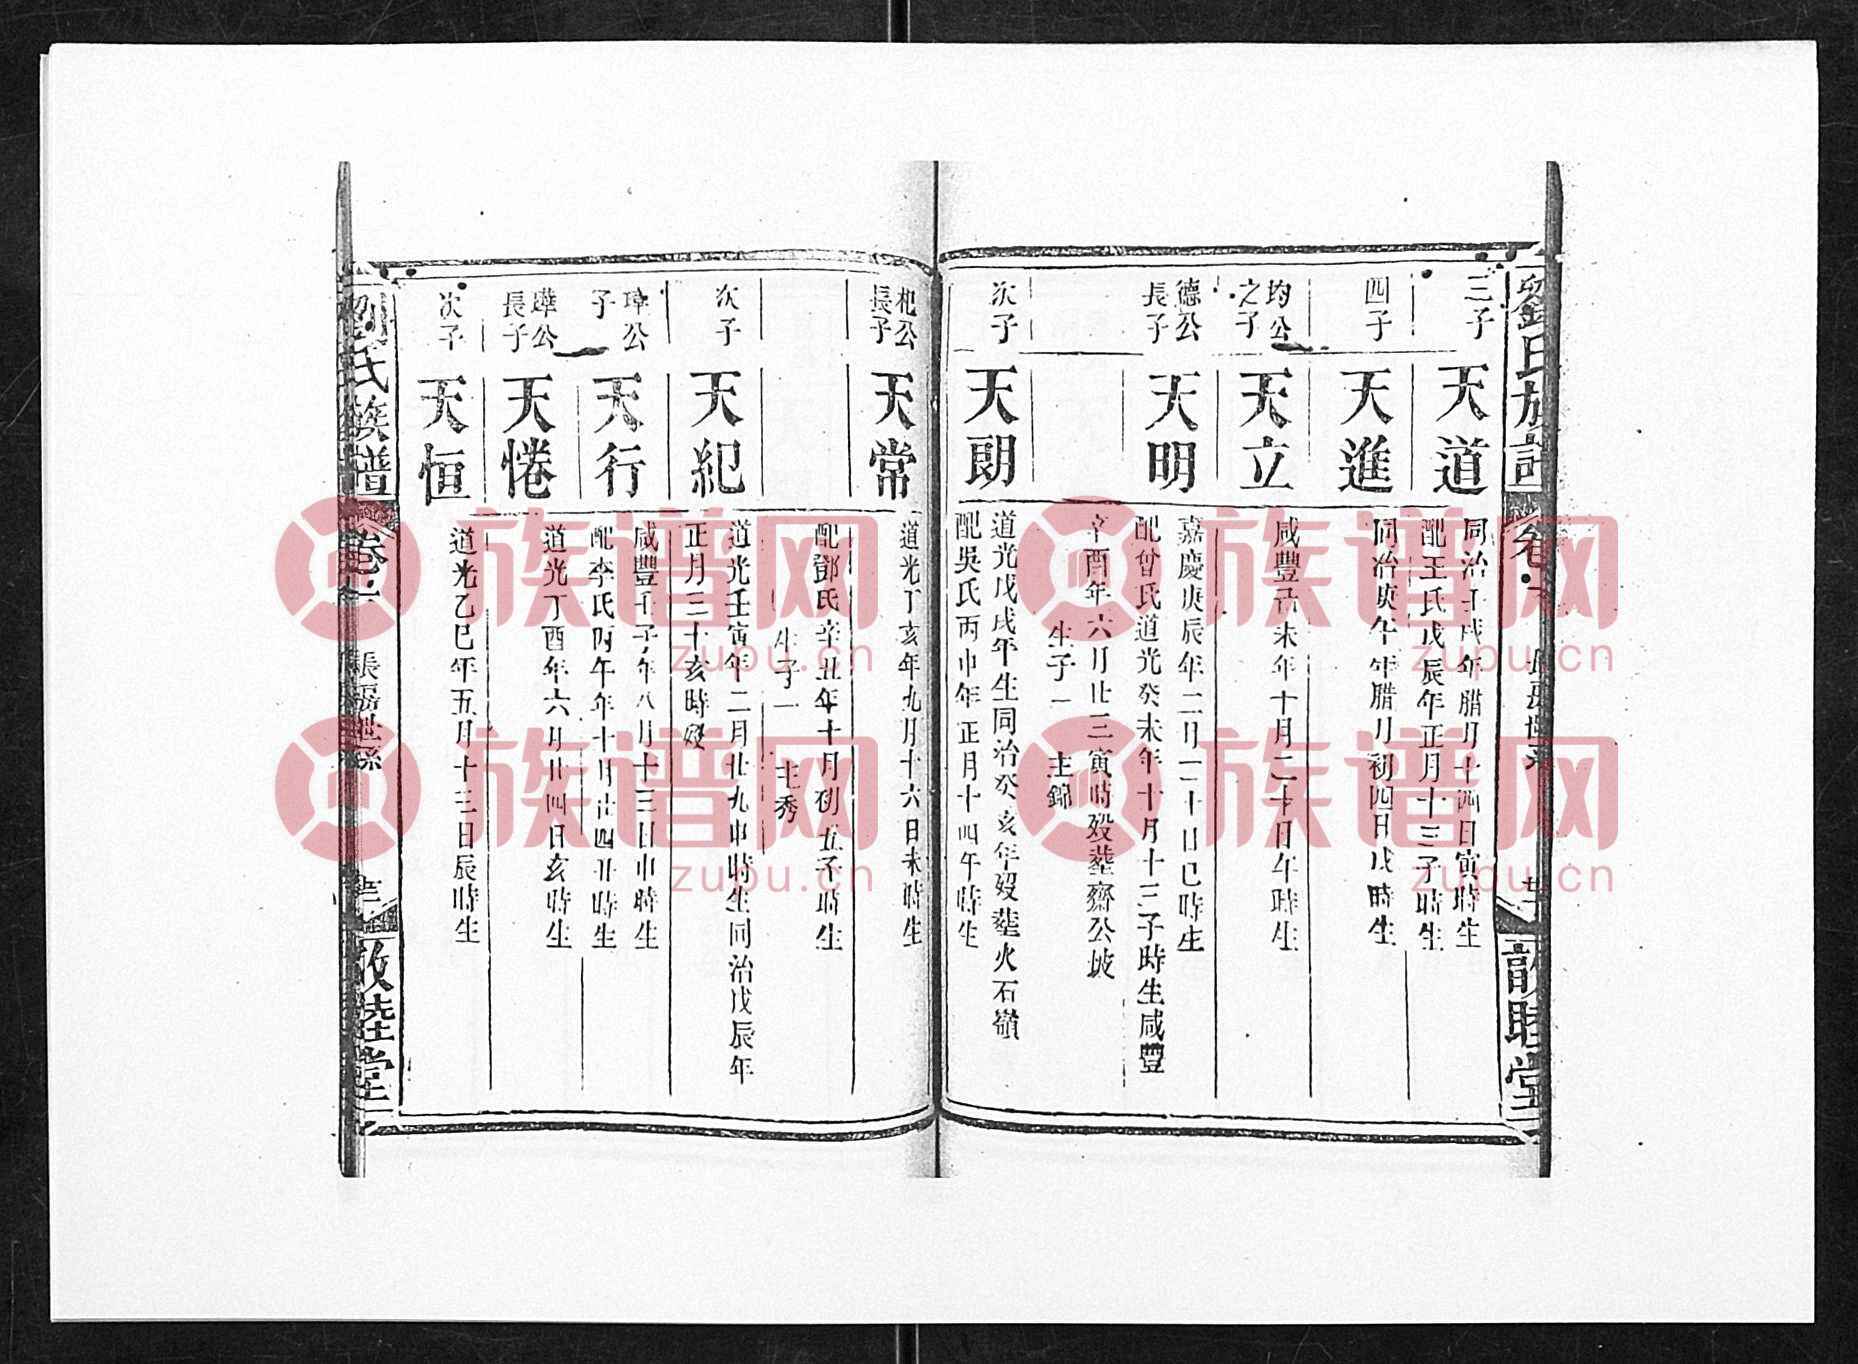 劉氏族譜
卷
敦睦堂
三子
天道
同治壬戌年腊月十四日寅時生
配王氏戊辰年正月十三子時生
四子
天進
同治庚午年腊月初四日戌時生
均公之子
天立
咸豐己未年十月二十日午時生
德公長子
天明
嘉慶庚辰年二月二十日巳時生
配曾氏道光癸未年十月十三子時生咸豐
辛酉年六月廿三寅時殁塟齋公坡
生子一 主錦
次子
天朗
道光戊戌年生同治癸亥年殁塟火石嶺
配吳氏丙申年正月十四午時生
杞公長子
天常
道光丁亥年九月十六日未時生
配鄧氏辛丑年十月初五子時生
生子一 主秀
次子
天紀
道光壬寅年二月廿九申時生同治戊辰年
正月三十亥時殁
公子
天行
咸豐壬子年八月十三日申時生
配李氏丙午年十月廿四丑時生
公長子
天惓
道光丁酉年六月廿四日亥時生
次子
天恒
道光乙巳年五月十三日辰時生
劉氏族譜
卷
長房世系
敦睦堂
族谱网
zupu.cn
族谱网
zupu.cn
族谱网
zupu.cn
族谱网
zupu.cn